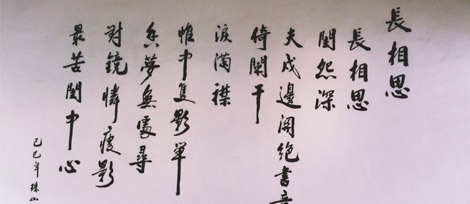 長相思
長相思
閨怨深
夫戍邊關絕書音
倚闌干
淚滿襟
惟中隻影單
魚夢無處尋
對鏡憐瘦影
最苦閨中心
己巳年珠山